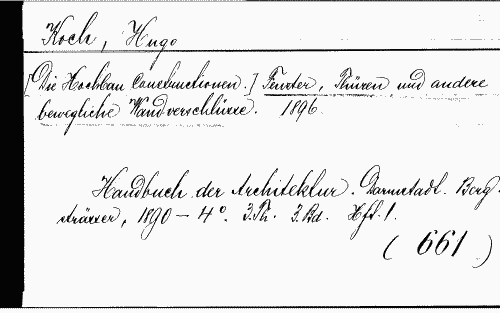 Koch, Hugo
[Die Hochbau Constructionen.] Fenster, Thüren und andere
bewegliche Wandverschlüsse. 1896.
Handbuch der Architektur. Darmstadt. Berg-
strässer, 1890 – 4°. 3.Th. 3.Bd. Hft. 1.
(661)